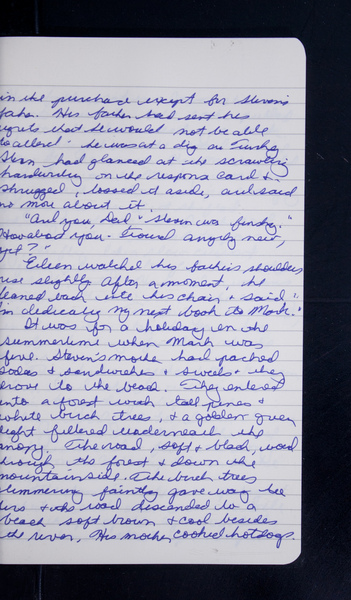 in the purchase except for Steven's
father. His father had sent his
regrets that he would not be able
to attend - he was at a dig in Turkey
Steven had glanced at the scrawling
handwriting on the response card &
shrugged, tossed it aside, and said
no more about it.
"And you, Dad" Steven was
"How about you. Found anything new,
yet?"
Eileen watched his father's shoulders
rise slightly. After a moment, he
leaned back into his chair & said "
I'm dedicating my next book to Mark."
It was for a holiday in the
summertime when Mark was
five. Steven's mother had packed
sodas & sandwiches & sweets & they
drove to the beach. They entered
into a forest with tall pines &
white birch trees, & a golden green
light filtered underneath the
canopy. The road, soft & black, wound
through the forest & down the
mountainside. The birch trees
shimmering faintly gave way to
firs & the road descended to a
beach soft brown & cool besides
the river. His mother cooked hotdogs.